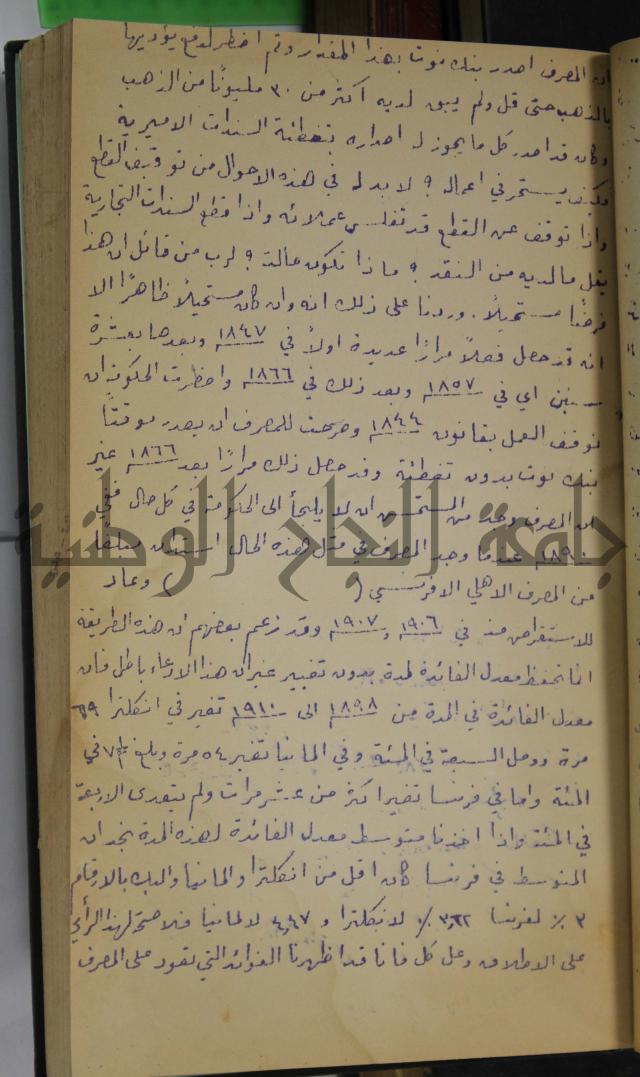 ان المصرف اصدر بنك نوت بهذا المقدار وثم اضطر لدفع يؤديها
بالذهب حتى قل ولم يبق لديه اكثر من ٣٠ مليونًا من الذهب
وكان قد اصدر كل ما يجوز له اصداره بتغطية السندات الاميرية
فكيف يستمر في اعماله ؟ لا بد له في هذه الاحوال من توقيف القطع
واذا توقف عن القطع قد تفلس عملائه واذا قطع السندات التجارية
يقل ما لديه من النقد ؟ ماذا تكون حالته ؟ لرب من قائل ان هذا
فرضًا مستحيلًا. وردنا على ذلك انه وان كان مستحيلًا ظاهرًا الا
انه قد حصل فعلًا مرارًا عديدة اولًا في ١٨٤٧ وبعدها بعشرة
سنين اي في ١٨٥٧ وبعد ذلك في ١٨٦٦ واضطرت الحكومة ان
توقف العمل بقانون ١٨٤٤ وصرحت للمصرف ان يصدر موقتًا
بنك نوت بدون تغطية وقد حصل ذلك مرارًا بعد ١٨٦٦ غير
ان المصرف وجد من المستحسن ان لا يلجأ الى الحكومة في كل حال ففي
١٨٩٠ عندما وجد المصرف في مثل هذه الحال استدان مبلغًا
من المصرف الاهلي الافرنسي ( ) وعاد
للاستقراض منه في ١٩٠٦ و ١٩٠٧ وقد زعم بعضهم ان هذه الطريقة
انما تحفظ معدل الفائدة لمدة بدون تغيير غير ان هذا الادعاء باطل فان
معدل الفائدة في المدة من ١٨٩٨ الى ١٩١٠ تغير في انكلترا ٦٩
مرة ووصل السبعة في المئة وفي المانيا تغير ٥٤ مرة وبلغ ٧ في
المئة واما في فرنسا تغير اكثر من عشر مرات ولم يتعدى الاربعة
في المئة واذا اخذنا متوسط معدل الفائدة لهذه المدة نجد ان
المتوسط في فرنسا كان اقل من انكلترا والمانيا واليك بالارقام
٣ ٪ لفرنسا ٣,٦٢ ٪ لانكلترا و ٤,٤٧ لالمانيا فلا صحة لهذا الرأي
على الاطلاق وعلى كل فانا قد اظهرنا الفوائد التي تعود على المصرف
جامعة النجاح الوطنية